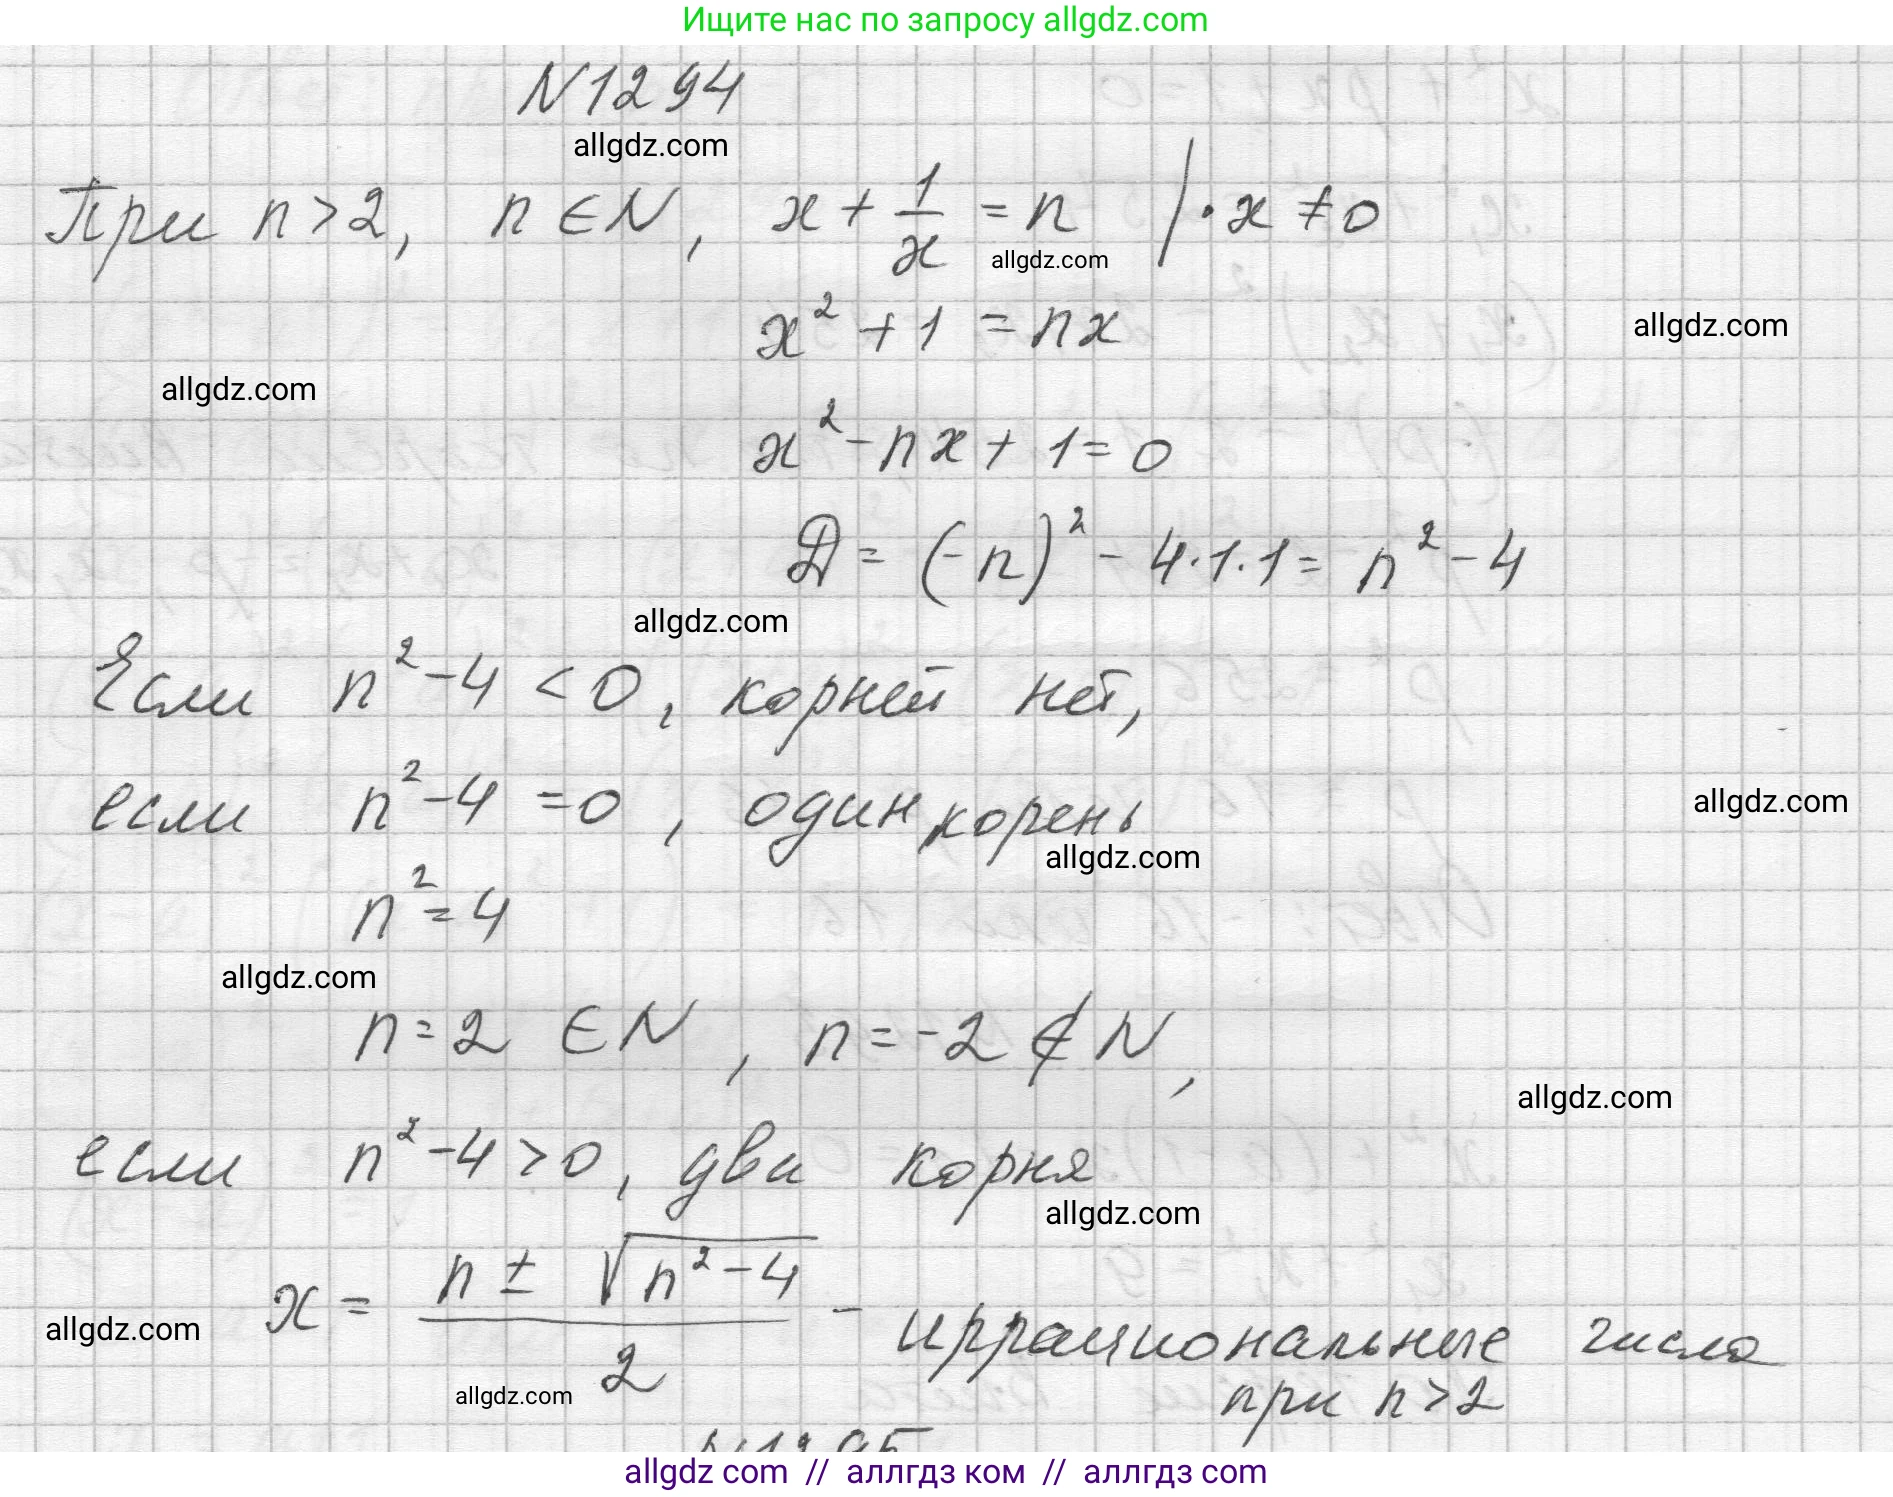 Ищите нас по запросу allgdz.com
N1294
allgdz.com
При n > 2, n ∈ N, x + 1/x = n | · x ≠ 0
allgdz.com
x² + 1 = nx
allgdz.com
allgdz.com
x² - nx + 1 = 0
Д = (-n)² - 4·1·1 = n² - 4
allgdz.com
Если n² - 4 < 0, корней нет,
если n² - 4 = 0, один корень
allgdz.com
allgdz.com
n² = 4
allgdz.com
n = 2 ∈ N, n = -2 ∉ N,
allgdz.com
если n² - 4 > 0, два корня
allgdz.com
x = (n ± √(n² - 4))/2 - иррациональные числа
allgdz.com
при n > 2
allgdz.com
N1295
allgdz com // аллгдз ком // аллгдз com